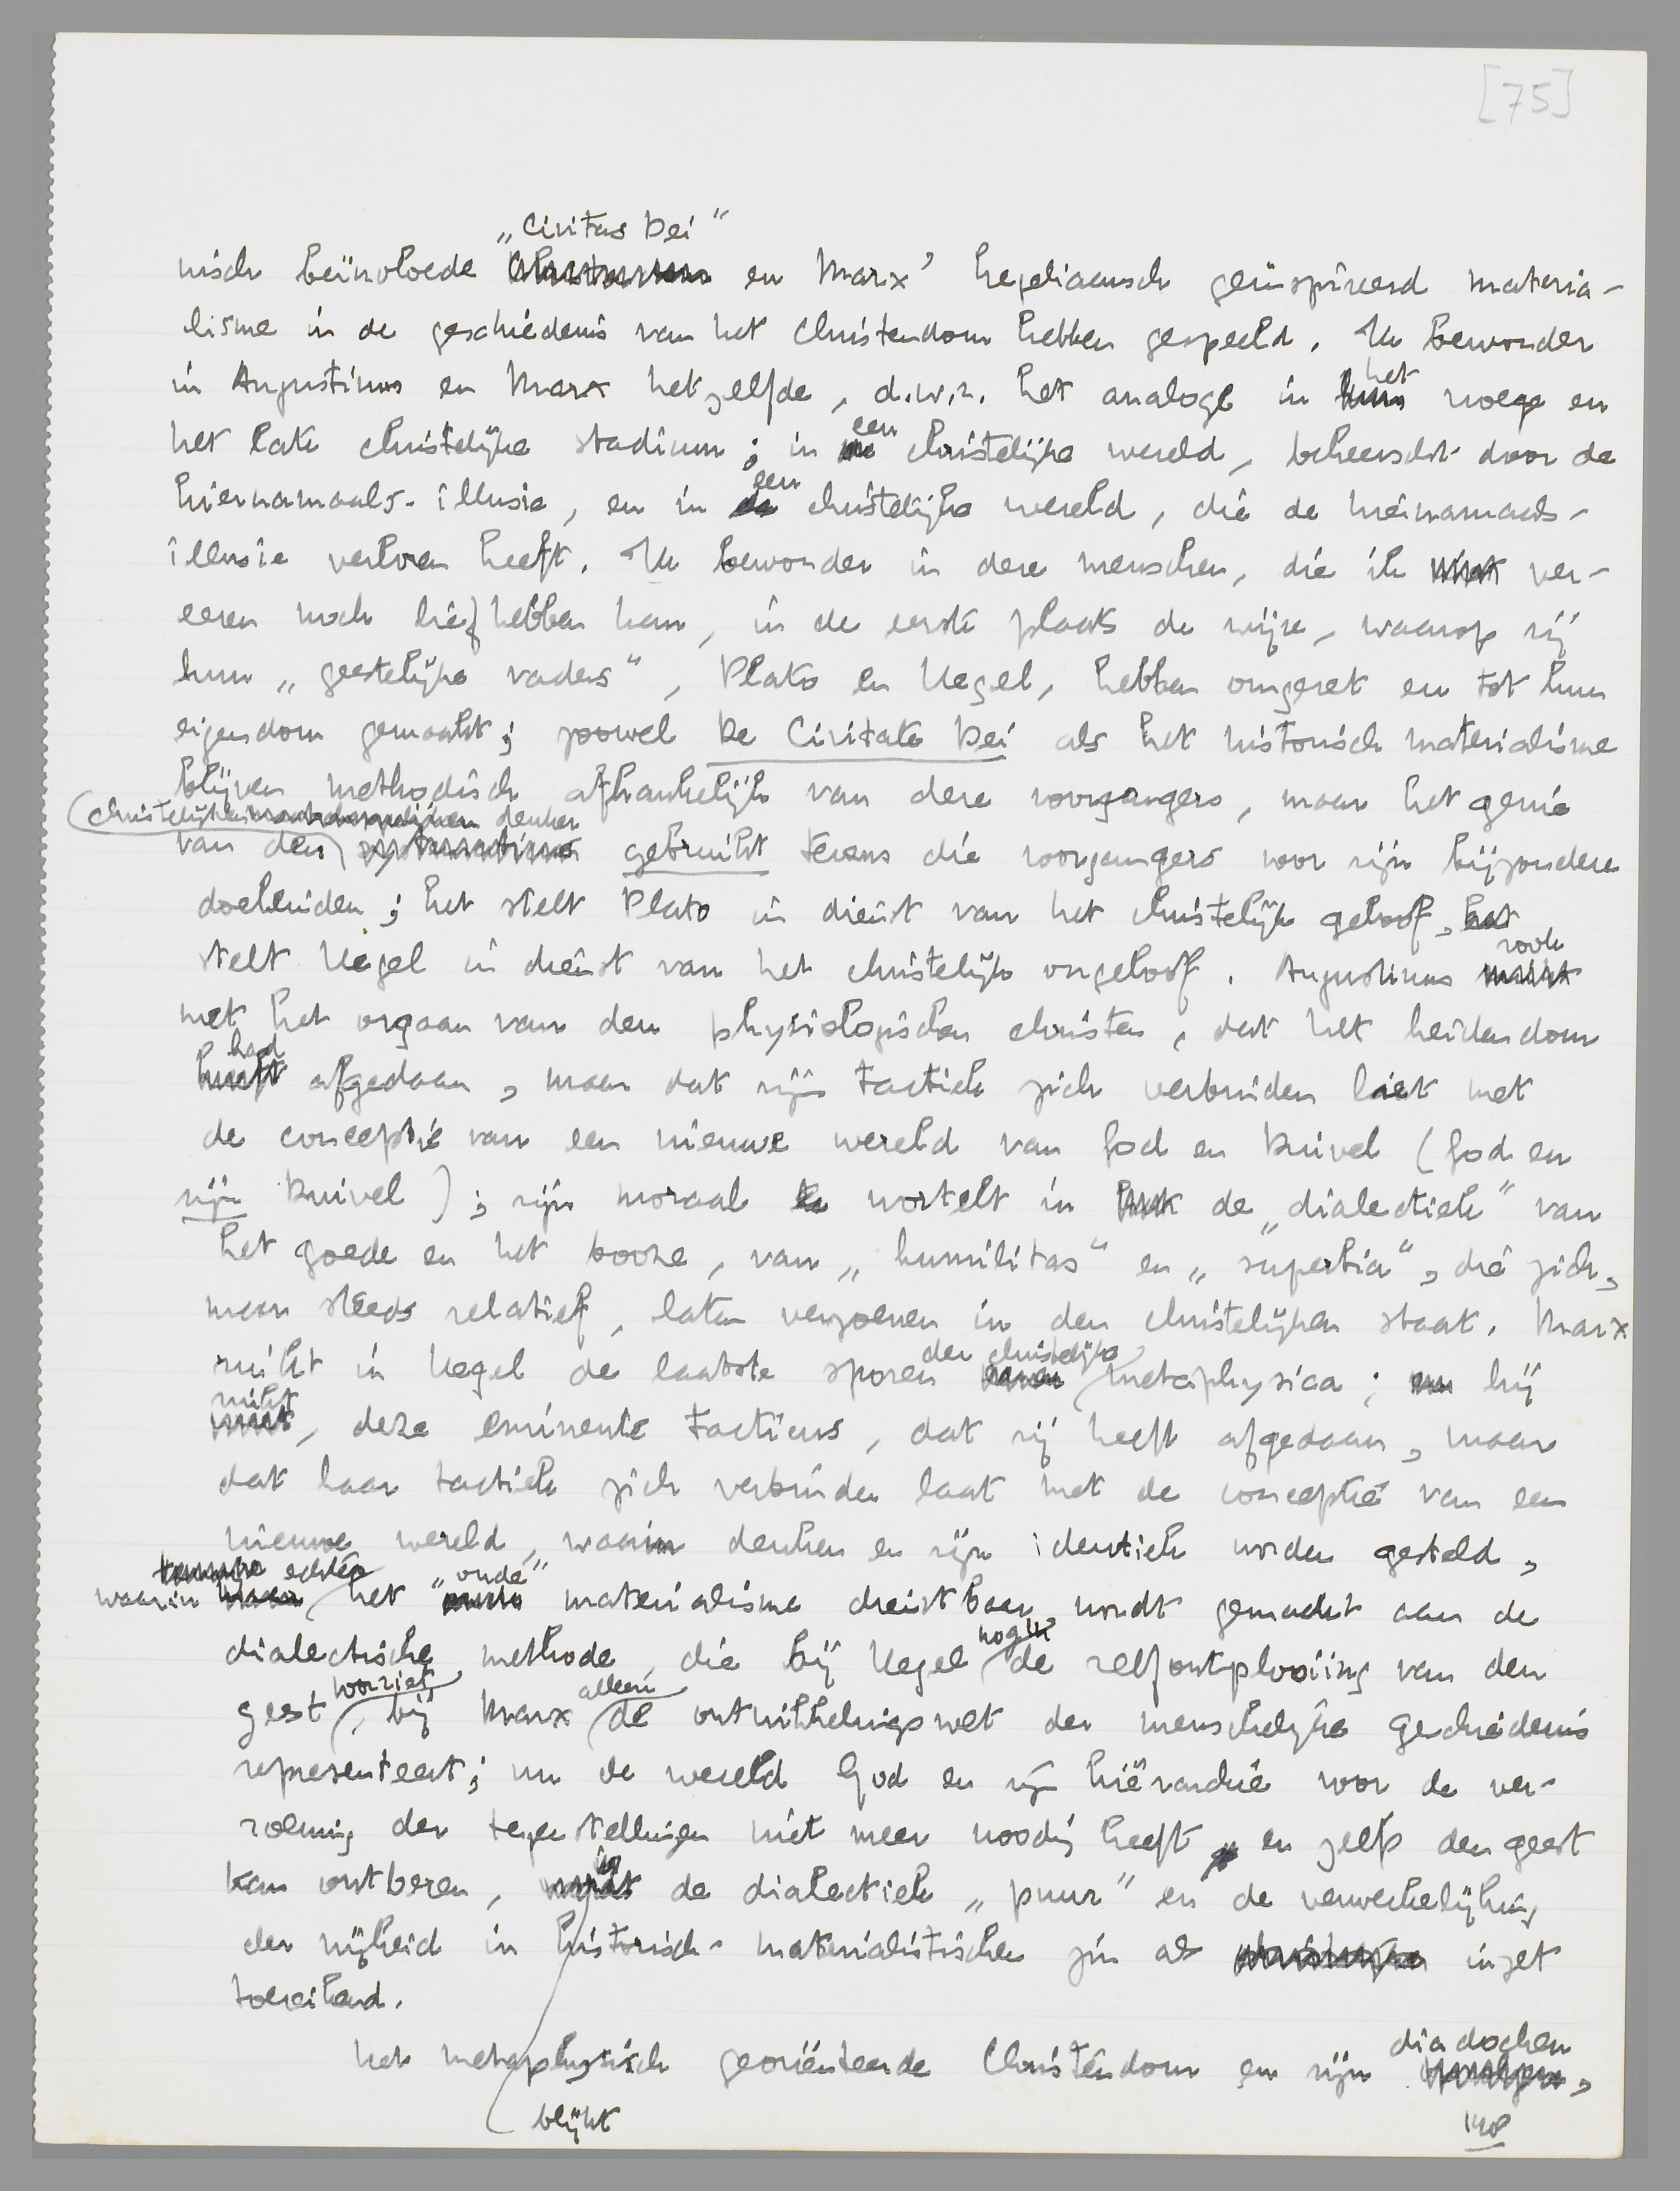 [75]
„Civitas Dei"
nisch beïnvloede en Marx' hegeliaansch geïnspireerd materia-
lisme in de geschiedenis van het Christendom hebben gespeeld. Ik bewonder
het
in Augustinus en Marx hetzelfde, d.w.z. het analoge in vroege en
een
het late christelijke stadium; in christelijke wereld, beheerscht door de
een
hiernamaals-illusie, en in de christelijke wereld, die de hiernamaals-
illusie verloren heeft. Ik bewonder in deze menschen, die ik niet ver-
eeren noch liefhebben kan, in de eerste plaats de wijze, waarop zij
hun „geestelijke vaders", Plato en Hegel, hebben omgezet en tot hun
eigendom gemaakt; zoowel De Civitate Dei als het historisch materialisme
blijven methodisch afhankelijk van deze voorgangers, maar het genie
christelijken denker
van den gebruikt tevens die voorgangers voor zijn bijzondere
doeleinden; het stelt Plato in dienst van het christelijk geloof, het
stelt Hegel in dienst van het christelijk ongeloof. Augustinus
rook
met het orgaan van den physiologischen christen, dat het heidendom
had
heeft afgedaan, maar dat zijn tactiek zich verbinden liet met
de conceptie van een nieuwe wereld van God en Duivel (God en
zijn Duivel); zijn moraal wortelt in de „dialectiek" van
het goede en het booze, van „humilitas" en „superbia", die zich,
maar steeds relatief, laten verzoenen in den christelijken staat. Marx
der christelijke
ruikt in Hegel de laatste sporen metaphysica; en hij
ruikt
, deze eminente tacticus, dat zij heeft afgedaan, maar
dat haar tactiek zich verbinden laat met de conceptie van een
nieuwe wereld, waarin denken en zijn identiek worden gesteld,
echter „oude"
waarin het materialisme dienstbaar wordt gemaakt aan de
nog
dialectische methode, die bij Hegel de zelfontplooiing van den
voorziet alleen
geest, bij Marx de ontwikkelingswet der menschelijke geschiedenis
representeert; nu de wereld God en zijn hiërarchie voor de ver-
zoening der tegenstellingen niet meer noodig heeft en zelfs den geest
is
kan ontberen, de dialectiek „puur" en de verwerkelijking
der vrijheid in historisch-materialistischen zin als inzet
toereikend.
diadochen
Het metaphysisch georiënteerde Christendom en zijn ,
blijkt